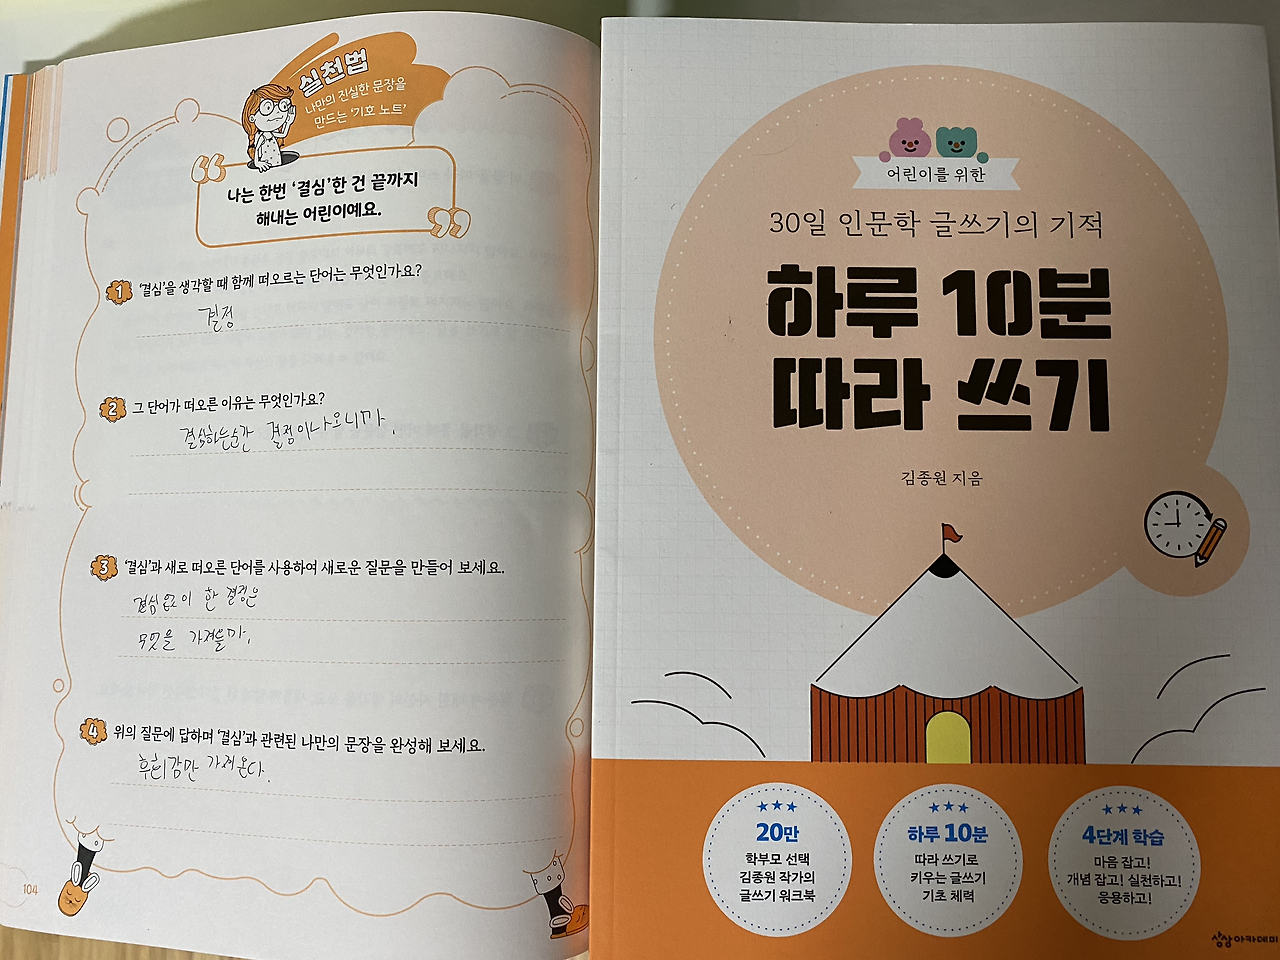 실천법
나만의 진실한 문장을
만드는 '기호 노트'
나는 한번 '결심'한 건 끝까지
해내는 어린이예요.
1 '결심'을 생각할 때 함께 떠오르는 단어는 무엇인가요?
결정
2 그 단어가 떠오른 이유는 무엇인가요?
결심하는순간 결정이나오니까.
3 '결심'과 새로 떠오른 단어를 사용하여 새로운 질문을 만들어 보세요.
결심없이 한 결정은
무엇을 가져올까.
4 위의 질문에 답하며 '결심'과 관련된 나만의 문장을 완성해 보세요.
후회감만 가져온다.
104
어린이를 위한
30일 인문학 글쓰기의 기적
하루 10분
따라 쓰기
김종원 지음
20만
학부모 선택
김종원 작가의
글쓰기 워크북
하루 10분
따라 쓰기로
키우는 글쓰기
기초 체력
4단계 학습
마음 잡고!
개념 잡고! 실천하고!
응용하고!
상상아카데미